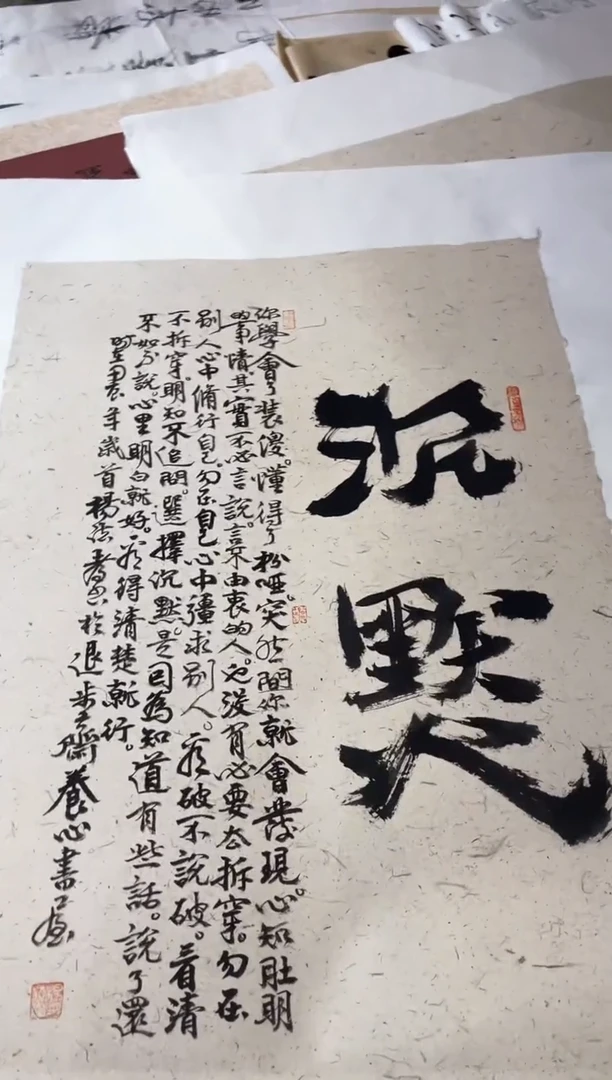 沉默
你學會了裝傻。懂得了扮哑。突然間你就會發現。心知肚明
的事情其實不必言說。言不由衷的人。也没有必要去拆穿。勿在
别人心中脩行自己。勿在自己心中彊求别人。看破不說破。看清
不拆穿。明知不追問。選擇沉默。是因為知道有些話。說了還
不如不說。心里明白就好。看得清楚就行。
年歲首楊於退步齋養心書屋